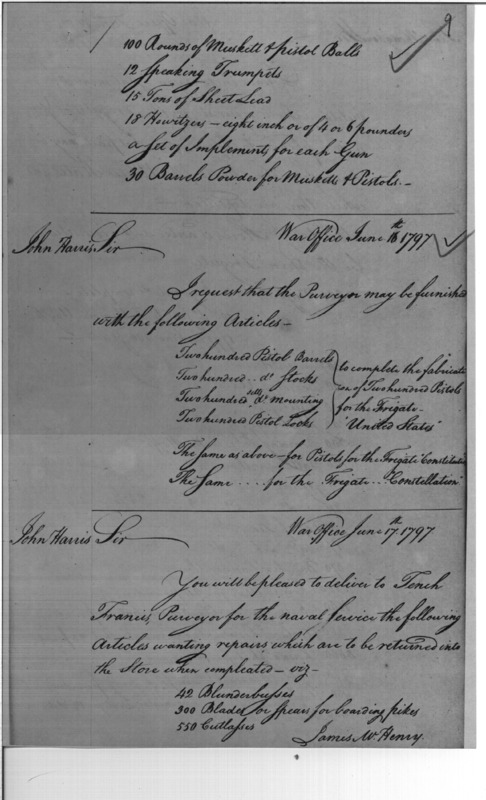 9
100 Rounds of Muskett & pistol Balls
12 Speaking Trumpets
15 Tons of Sheet Lead
18 Howitzers — eight inch or of 4 or 6 pounders
a Set of Implements for each Gun
30 Barrels Powder for Musketts & Pistols. —
War Office June 16th 1797
John Harris Sir
I request that the Purveyor may be furnished
with the following Articles —
Two hundred Pistol Barrels
Two hundred .. do Stocks
Two hundred setts do mounting
Two hundred Pistol Locks
to complete the fabricati
on of Two hundred Pistols
for the Frigate
"United States"
The same as above — for Pistols for the Frigate "Constitution"
The Same .... for the Frigate ... "Constellation"
War Office June 17th 1797
John Harris Sir
You will be pleased to deliver to Tench
Francis, Purveyor for the naval Service the following
Articles wanting repairs which are to be returned into
the Store when compleated — viz —
42 Blunderbusses
300 Blades or Spears for boarding pikes
550 Cutlasses
James McHenry.